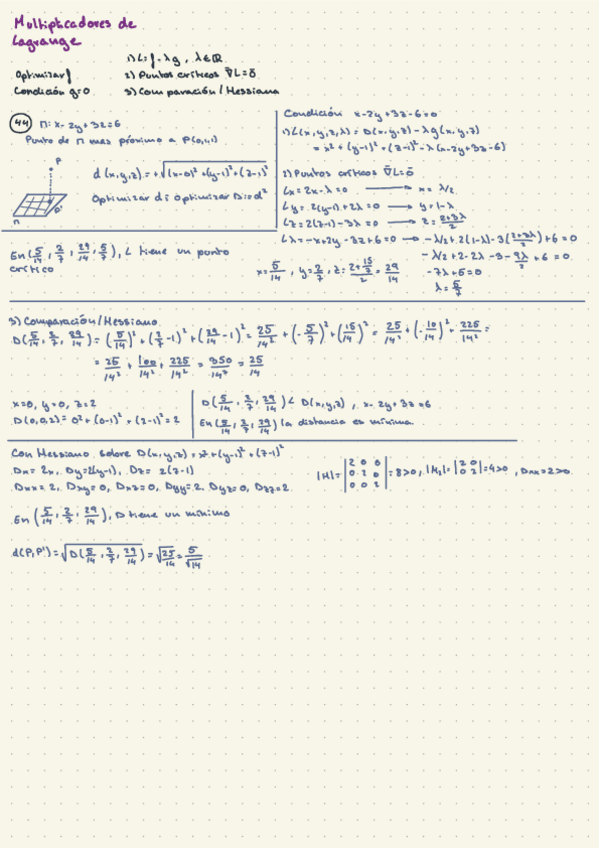 Multiplicadores de
Lagrange
Optimizar f
Condición g=0
1) L=f-λg, λ∈ℝ
2) Puntos críticos ∇̄L=ō
3) Comparación/Hessiana
44 π: x-2y+3z=6
Punto de π mas próximo a P(0,1,1)
P
P'
π
d(x,y,z)=+√((x-0)²+(y-1)²+(z-1)²)
Optimizar d ≡ Optimizar D=d²
Condición x-2y+3z-6=0
1) L(x,y,z,λ)=D(x,y,z)-λg(x,y,z)
=x²+(y-1)²+(z-1)²-λ(x-2y+3z-6)
2) Puntos críticos ∇̄L=ō
Lx=2x-λ=0 → x=λ/2
Ly=2(y-1)+2λ=0 → y=1-λ
Lz=2(z-1)-3λ=0 → z=(2+3λ)/2
Lλ=-x+2y-3z+6=0 → -λ/2+2(1-λ)-3((2+3λ)/2)+6=0
-λ/2+2-2λ-3-9λ/2+6=0
-7λ+5=0
λ=5/7
x=5/14, y=2/7, z=(2+15/7)/2=29/14
En (5/14, 2/7, 29/14, 5/7), L tiene un punto
crítico
3) Comparación/Hessiano
D(5/14, 2/7, 29/14)=(5/14)²+(2/7-1)²+(29/14-1)²=25/14²+(-5/7)²+(15/14)²=25/14²+(-10/14)²+225/14²=
=25/14²+100/14²+225/14²=350/14²=25/14
x=0, y=0, z=2
D(0,0,2)=0²+(0-1)²+(2-1)²=2
D(5/14, 2/7, 29/14)<D(x,y,z), x-2y+3z=6
En (5/14, 2/7, 29/14) la distancia es mínima
Con Hessiano sobre D(x,y,z)=x²+(y-1)²+(z-1)²
Dx=2x, Dy=2(y-1), Dz=2(z-1)
Dxx=2, Dxy=0, Dxz=0, Dyy=2, Dyz=0, Dzz=2
|H|=|2 0 0
0 2 0
0 0 2|=8>0, |H₂|=|2 0
0 2|=4>0, Dxx=2>0
En (5/14, 2/7, 29/14), D tiene un mínimo
d(P,P')=√D(5/14, 2/7, 29/14)=√(25/14)=5/√14